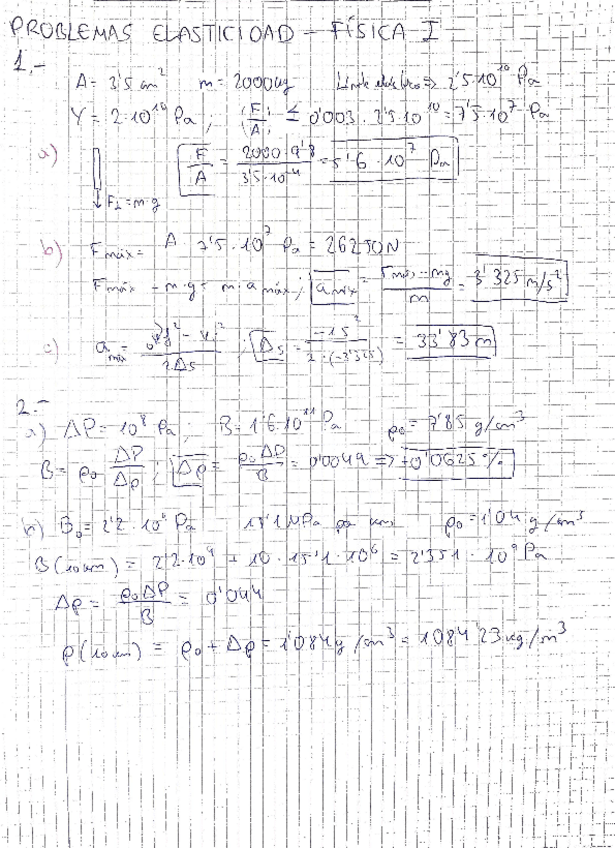 PROBLEMAS ELASTICIDAD - FÍSICA I
1.-
A = 3'5 cm² m = 2000 kg Límite elástico => 2'5·10¹⁰ Pa
Y = 2·10¹⁰ Pa ; (F/A) ≤ 0'003 · 2'5·10¹⁰ = 7'5·10⁷ Pa
a) F/A = 2000·9'8 / 3'5·10⁻⁴ = 5'6·10⁷ Pa
F⊥ = m·g
b) Fmáx = A 7'5·10⁷ Pa = 26250N
Fmáx - m·g = m·a máx ; a máx = Fmáx - mg / m = 3'325 m/s²
c) a máx = vf² - vi² / 2Δs ; Δs = -15² / 2·(-3'325) = 33'83 m
2.-
a) ΔP = 10⁸ Pa, B = 1'6·10¹¹ Pa ρ₀ = 7'85 g/cm³
B = ρ₀ ΔP/Δρ ; Δρ = ρ₀ΔP / B = 0'0049 => +0'0625%
b) B₀ = 2'2·10⁹ Pa 15'1 MPa por km ρ₀ = 1'04 g/cm³
B(10km) = 2'2·10⁹ + 10·15'1·10⁶ = 2'351·10⁹ Pa
Δρ = ρ₀ΔP / B = 0'044
ρ(10km) = ρ₀ + Δρ = 1'084 g/cm³ = 1084'23 kg/m³